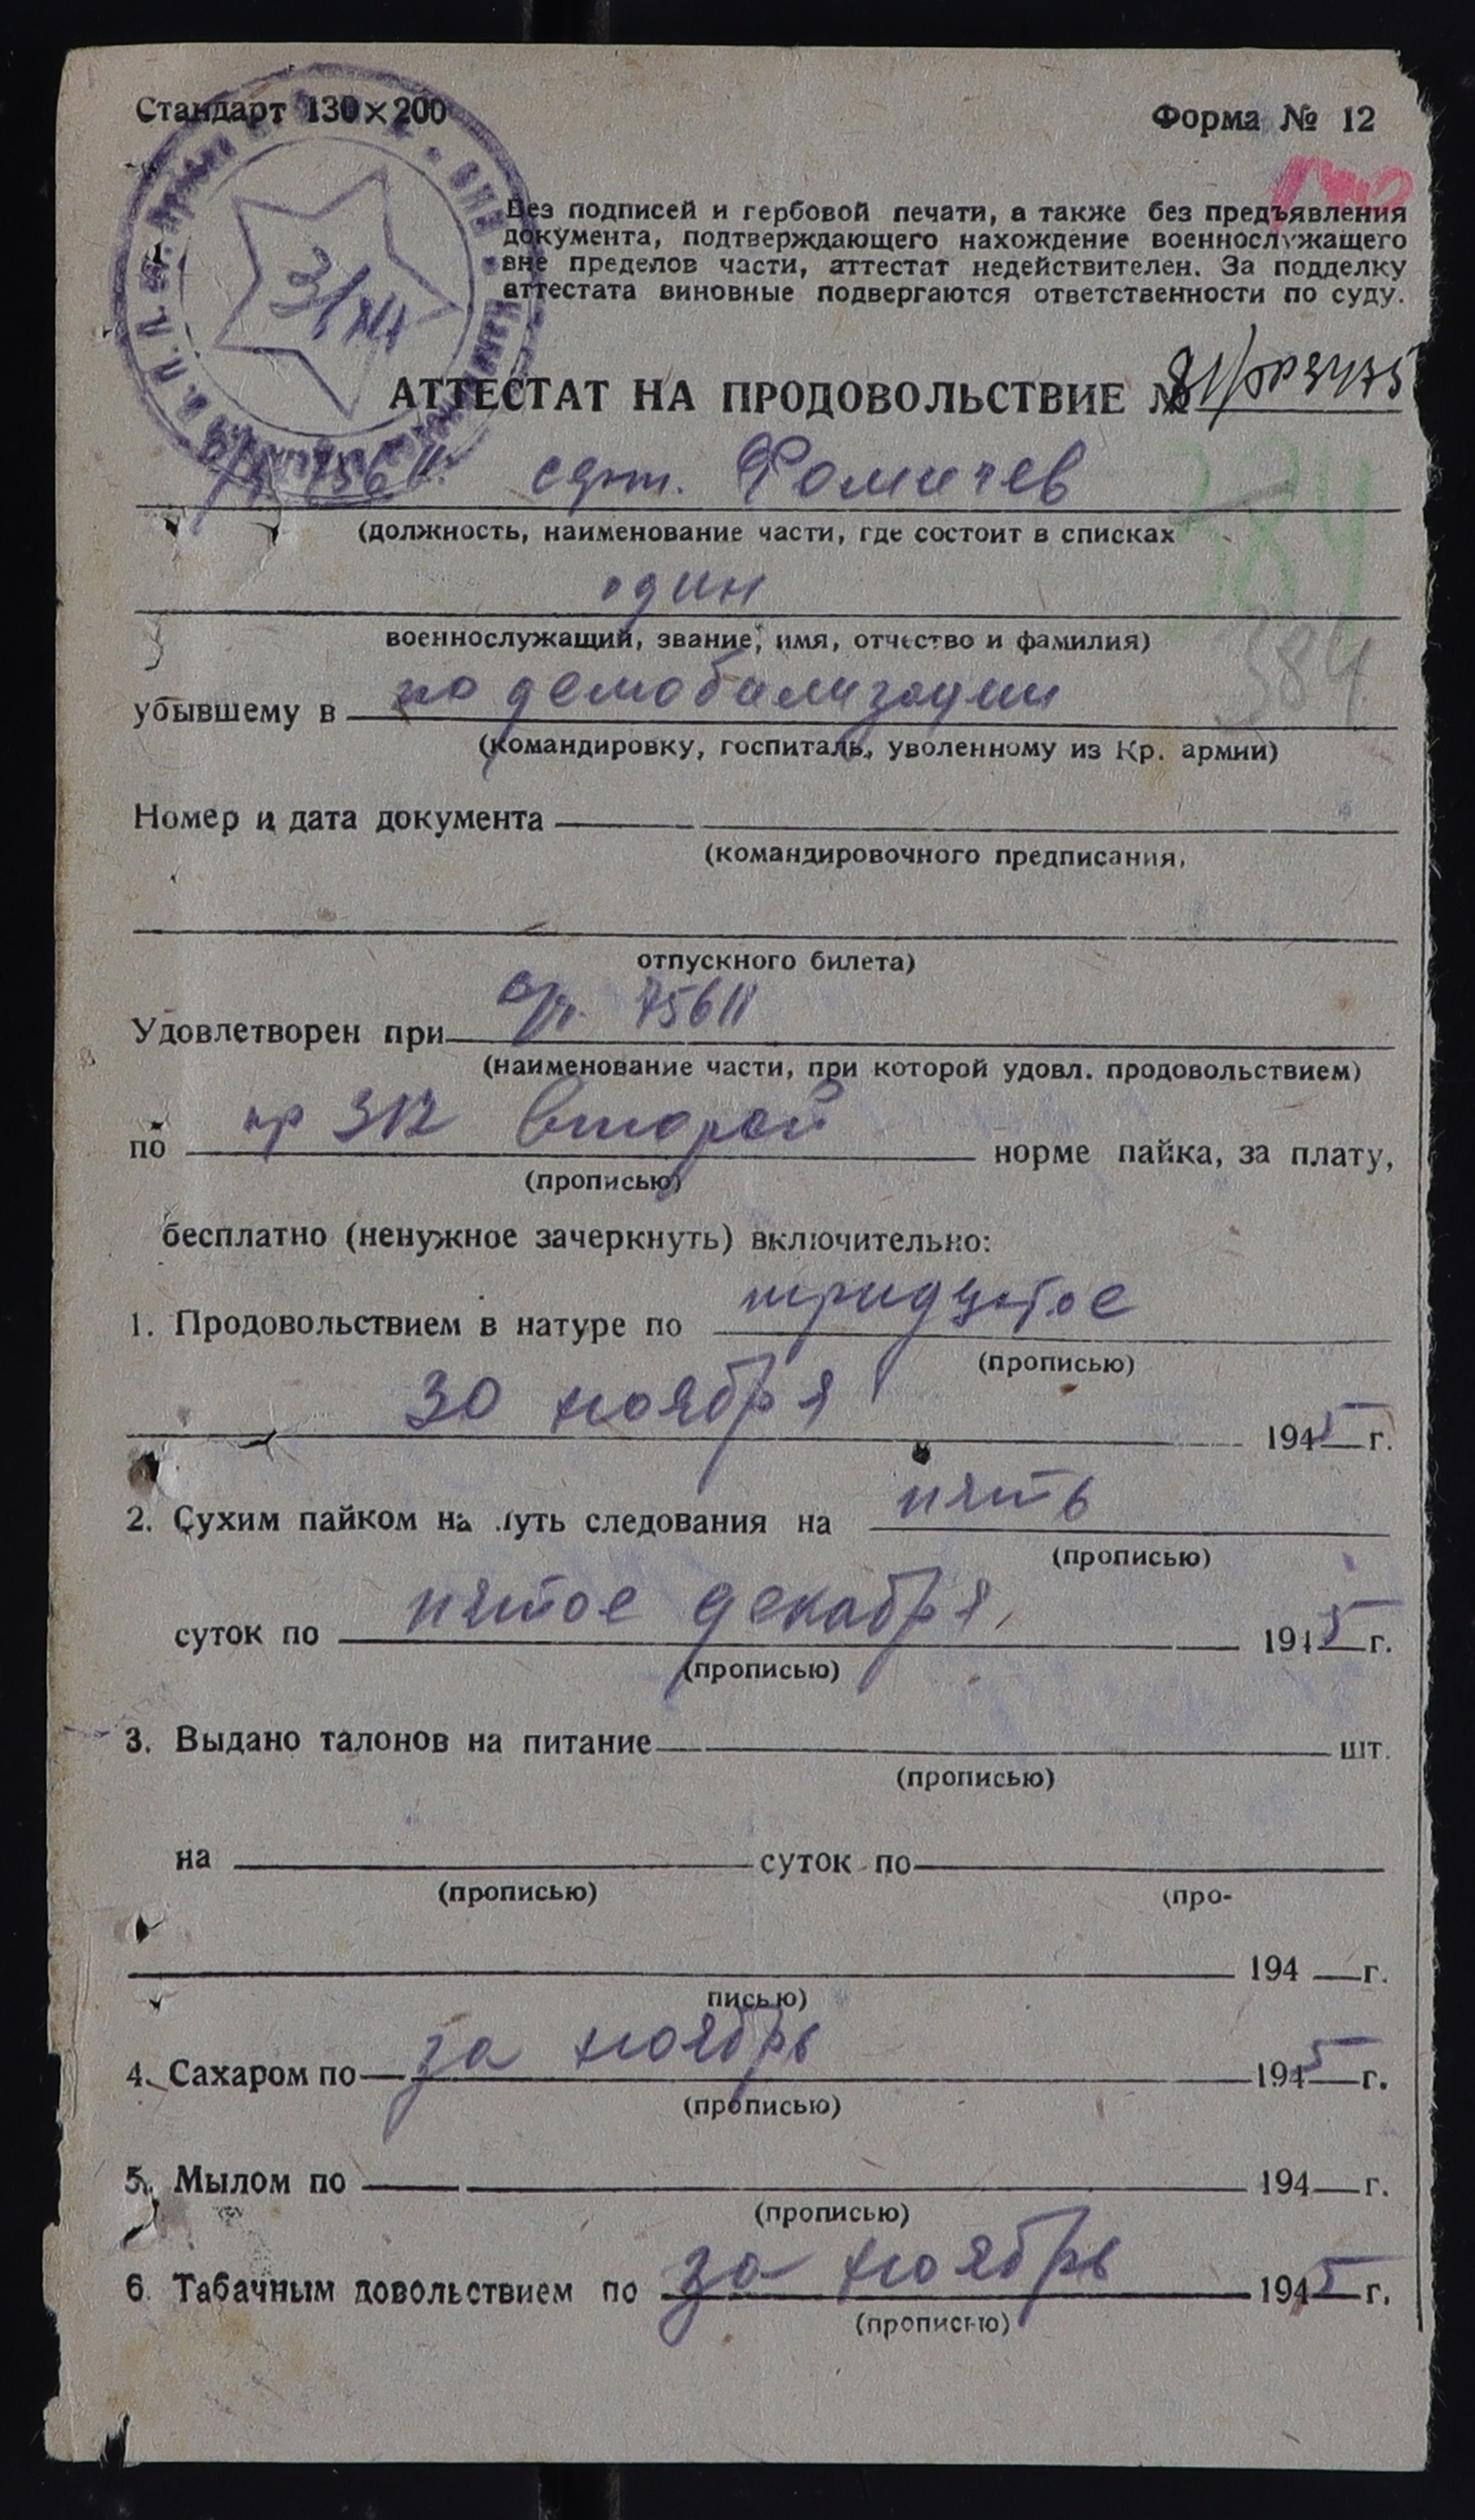 Стандарт 130×200
Форма № 12
Без подписей и гербовой печати, а также без предъявления
документа, подтверждающего нахождение военнослужащего
вне пределов части, аттестат недействителен. За подделку
аттестата виновные подвергаются ответственности по суду.
АТТЕСТАТ НА ПРОДОВОЛЬСТВИЕ №
75611 Фомичев
(должность, наименование части, где состоит в списках
384
один
военнослужащий, звание, имя, отчество и фамилия)
384
убывшему в по демобилизации
(командировку, госпиталь, уволенному из Кр. армии)
Номер и дата документа
(командировочного предписания,
отпускного билета)
Удовлетворен при 75611
(наименование части, при которой удовл. продовольствием)
по пр 312 второй норме пайка, за плату,
(прописью)
бесплатно (ненужное зачеркнуть) включительно:
1. Продовольствием в натуре по тридцатое
(прописью)
30 ноября 1945 г.
2. Сухим пайком на путь следования на пять
(прописью)
суток по пятое декабря 1945 г.
(прописью)
3. Выдано талонов на питание шт.
(прописью)
на суток по
(прописью) (про-
194 г.
писью)
4. Сахаром по за ноябрь 1945 г.
(прописью)
5. Мылом по 194 г.
(прописью)
6. Табачным довольствием по за ноябрь 1945 г.
(прописью)